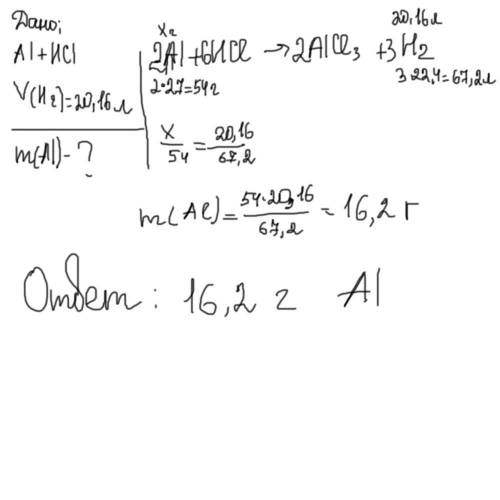 Дано;
Al+HCl
V(H₂)=20,16л
m(Al)-?
xг 20,16л
2Al+6HCl →2AlCl₃ +3H₂
2·27=54г 3 22,4=67,2л
x/54 = 20,16/67,2
m(Al)= 54·20,16/67,2 = 16,2 г
Ответ: 16,2 г Al